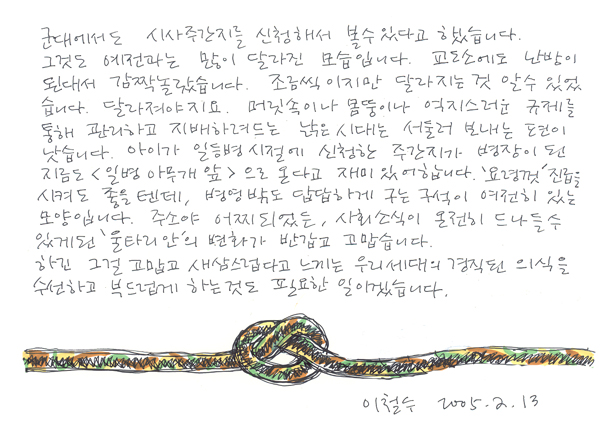 군대에서도 시사주간지를 신청해서 볼수있다고 했습니다.
그것도 예전과는 많이 달라진 모습입니다. 교도소에도 난방이
된대서 깜짝놀랐습니다. 조금씩이지만 달라지는것 알수있었
습니다. 달라져야지요. 머릿속이나 몸뚱이나 억지스러운 규제를
통해 관리하고 지배하려드는 낡은시대는 서둘러 보내는 편이
낫습니다. 아이가 일등병시절에 신청한 주간지가 병장이 된
지금도 <일병 아무개 앞>으로 온다고 재미있어합니다. '요령껏' 진급을
시켜도 좋을텐데, 병영밖도 답답하게 구는 구석이 여전히 있는
모양입니다. 주소야 어찌되었든, 사회소식이 온전히 드나들수
있게된 '울타리안'의 변화가 반갑고 고맙습니다.
하긴 그걸 고맙고 새삼스럽다고 느끼는 우리세대의 경직된 의식을
수선하고 부드럽게 하는것도 필요한 일이겠습니다.
이철수 2005.2.13